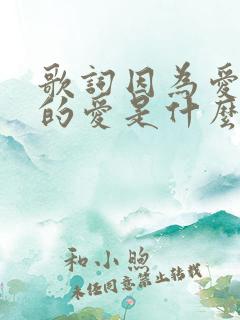 歌詞因為愛
的愛是什麼
和小煦
未經同意禁止轉載